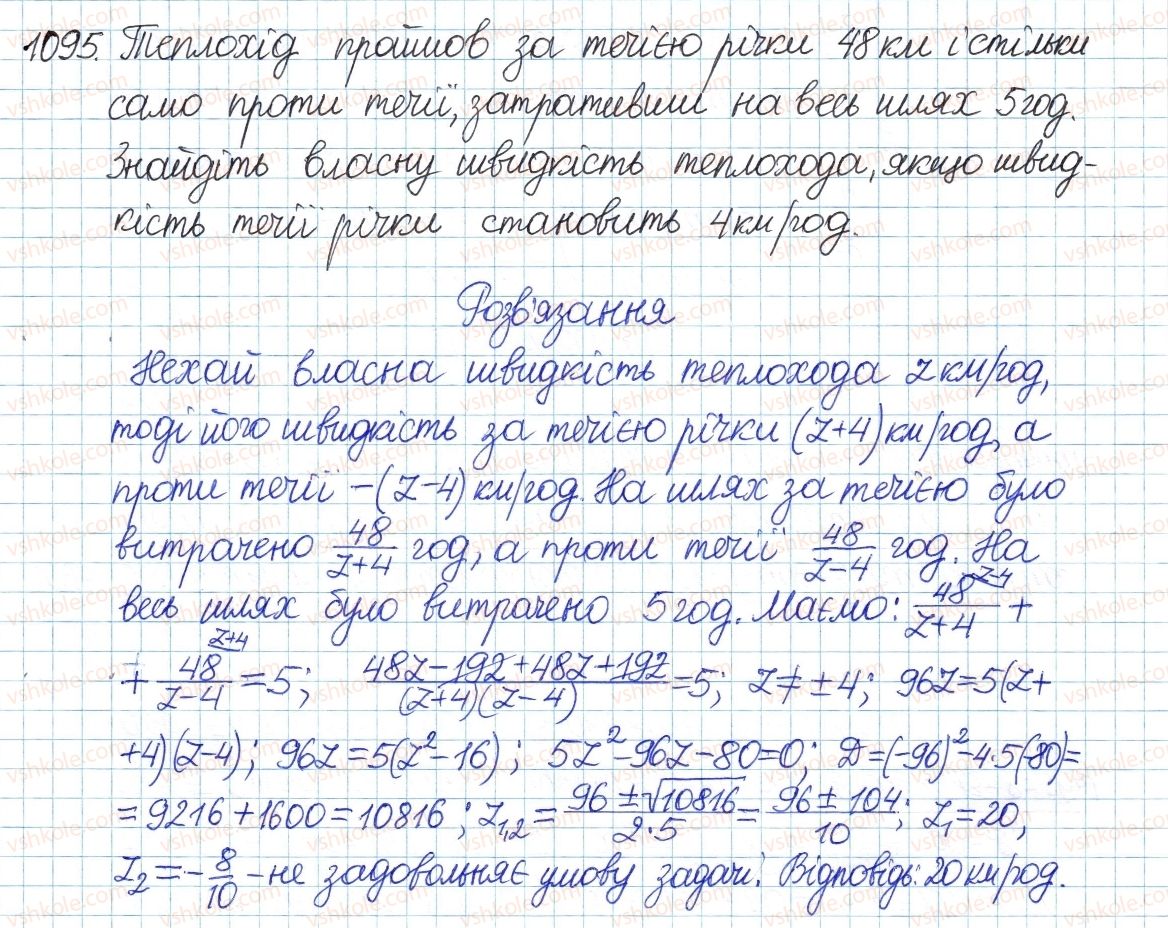 1095. Теплохід пройшов за течією річки 48 км і стільки
само проти течії, затративши на весь шлях 5 год.
Знайдіть власну швидкість теплохода, якщо швид-
кість течії річки становить 4 км/год.
Розв'язання
Нехай власна швидкість теплохода z км/год,
тоді його швидкість за течією річки (z+4) км/год, а
проти течії – (z-4) км/год. На шлях за течією було
витрачено 48/(z+4) год, а проти течії 48/(z-4) год. На
весь шлях було витрачено 5 год. Маємо: 48^(z-4)/(z+4) +
+ 48^(z+4)/(z-4) = 5; (48z-192+48z+192)/((z+4)(z-4)) = 5; z ≠ ±4; 96z=5(z+
+4)(z-4); 96z=5(z²-16); 5z²-96z-80=0; D=(-96)²-4·5(-80)=
=9216+1600=10816; z₁,₂ = (96±√10816)/(2·5) = (96±104)/10; z₁=20,
z₂ = -8/10 – не задовольняє умову задачі. Відповідь: 20 км/год.